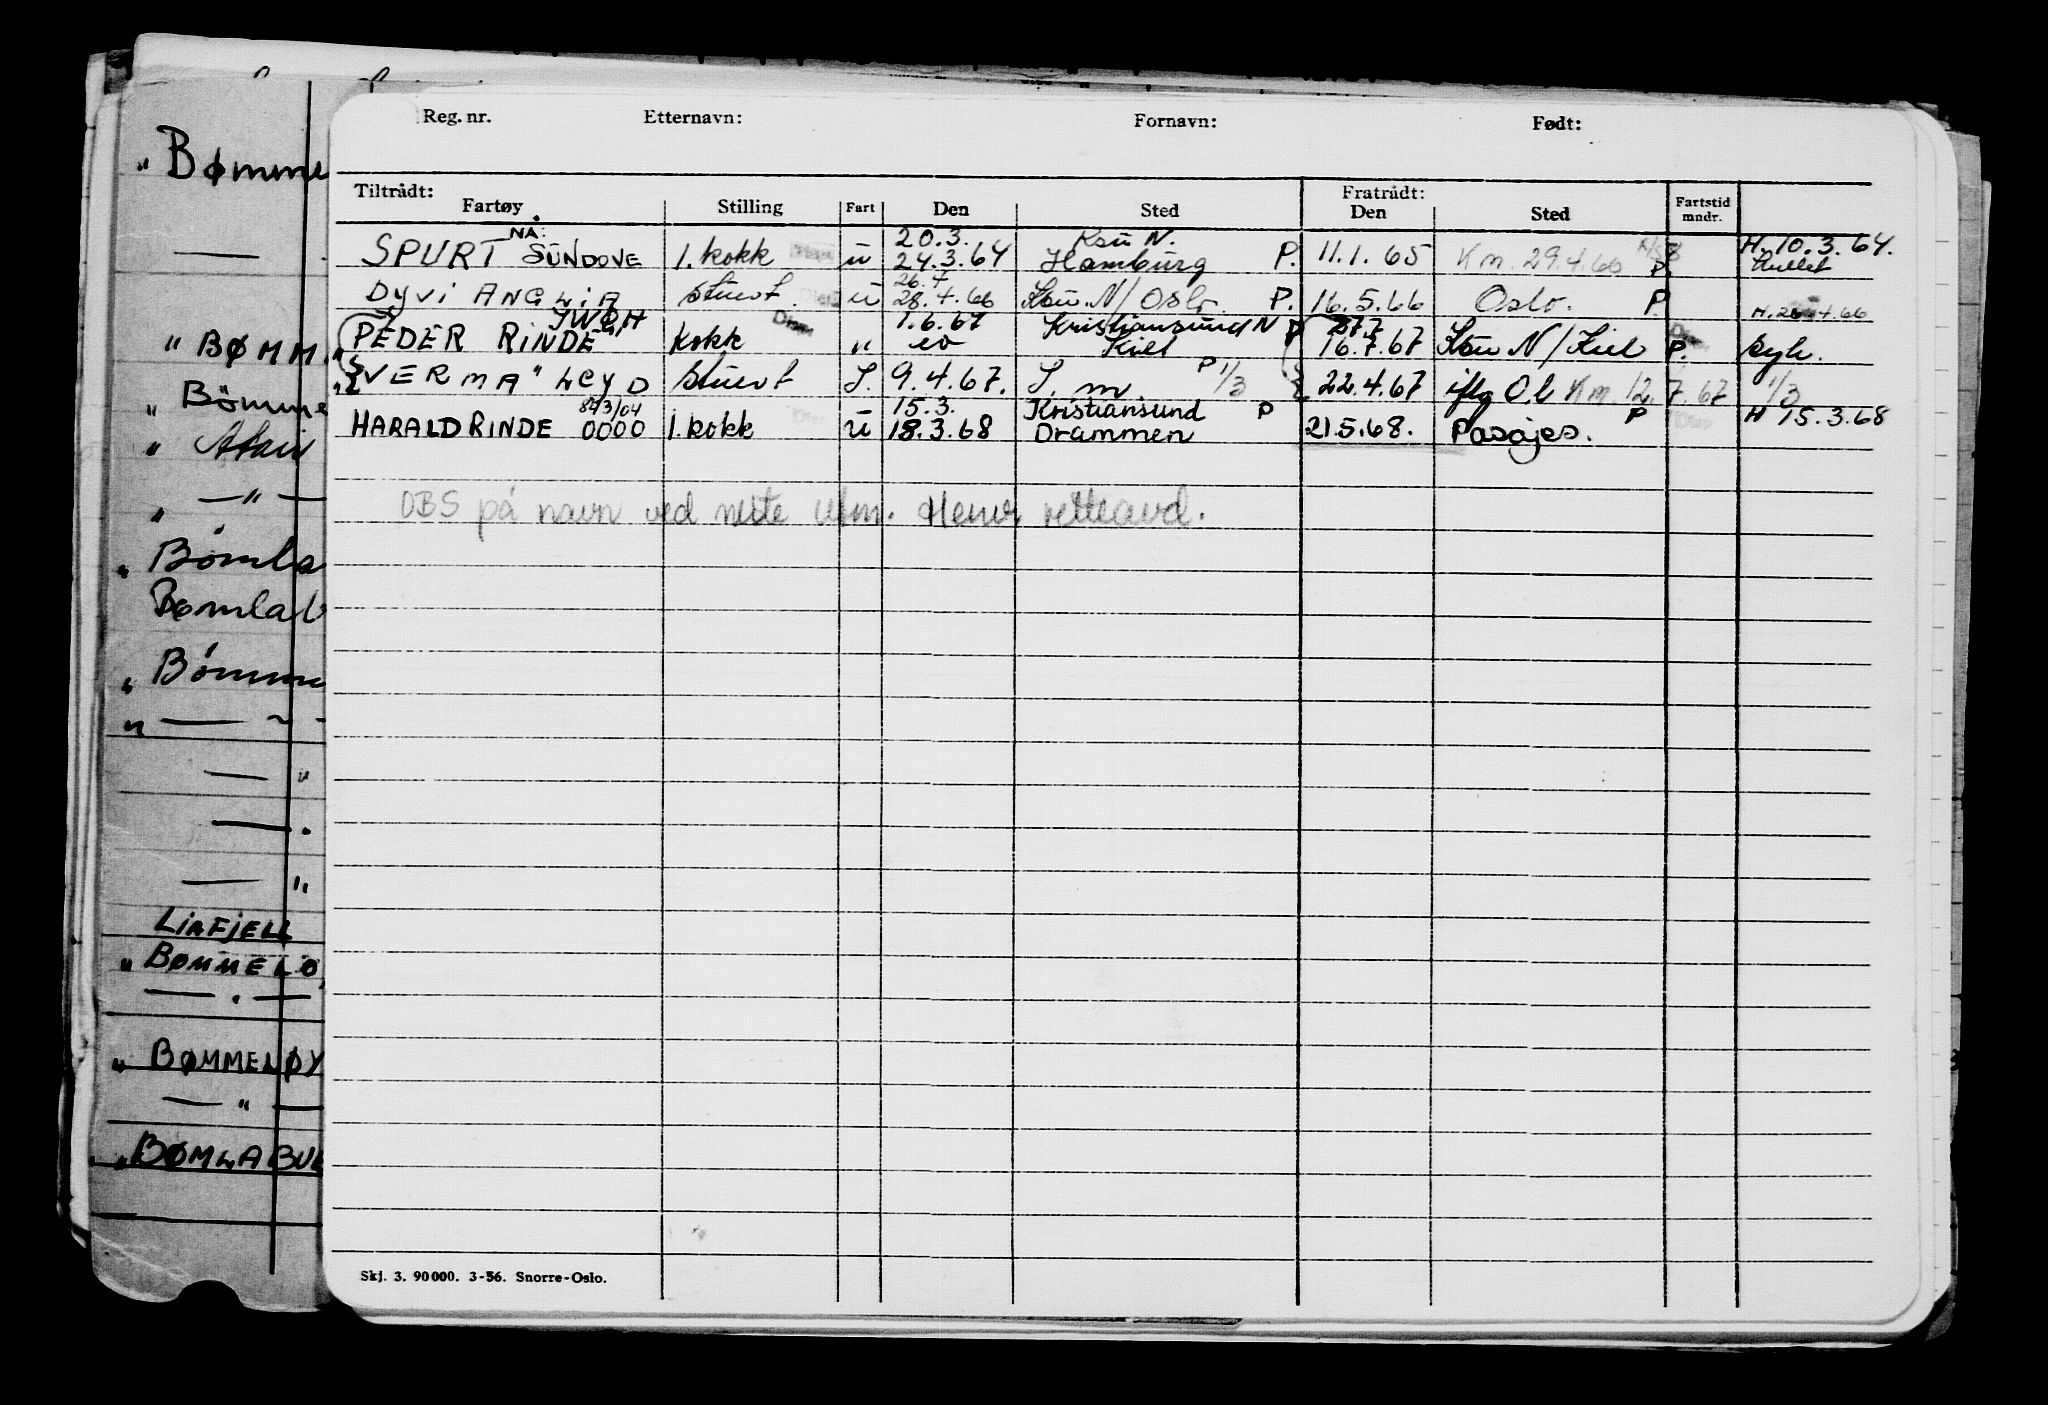 Reg. nr. Etternavn: Fornavn: Født:
Tiltrådt: Fratrådt:
Fartøy Stilling Fart Den Sted Den Sted Fartstid mndr.
NÅ: 20.3. Ksu N. H. 10.3.64.
SPURT SUNDOVE 1. kokk u 24.3.64 Hamburg P. 11.1.65 Km. 29.4.66 P.
26.4
DYVI ANGLIA stuert u 28.4.66 Ksu. N/Oslo P. 16.5.66 Oslo. P. 4.66
JWQH 1.6.67 Kristiansund N P 27.7
"PEDER RINDE" kokk " eo Kiel 16.7.67 Ksu N/Kiel P. syk.
"VERMA" LCYD stuert S. 9.4.67. S. m P 1/3 22.4.67 iflg O.b Km. 12.7.67 1/3
82/3/04 15.3. Kristiansund P P H 15.3.68
HARALD RINDE 0000 1. kokk u 18.3.68 Drammen 21.5.68. Pasajes.
OBS på navn ved neste utm. retteavd.
Skj. 3. 90000. 3-56. Snorre-Oslo.
" Bømme
" BØMM
" Bømme
" — " —
" Bømla
Bømlab
" Bømme
" — ~ -
— "
— .
— "
LIAFJELL
" BØMMELØ
— . —
" BØMMELØY
— " —
" BØMLABUE